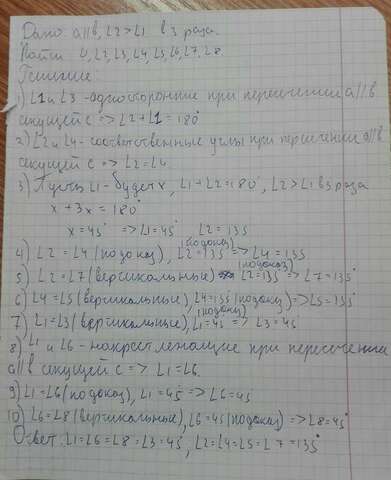 Дано: a||в, ∠2>∠1 в 3 раза.
Найти ∠1, ∠2, ∠3, ∠4, ∠5, ∠6, ∠7, ∠8.
Решение:
1) ∠1 и ∠3 - односторонние при пересечении a||в
секущей c => ∠2+∠1=180°
2) ∠2 и ∠4 - соответственные углы при пересечении a||в
секущей c => ∠2=∠4
3) Пусть ∠1 - будет x, ∠1+∠2=180°, ∠2>∠1 в 3 раза
x+3x=180°
x=45° => ∠1=45° ∠2=135
4) ∠2=∠4 (по доказ), ∠2=135 (по доказ) => ∠4=135
5) ∠2=∠7 (вертикальные) ∠2=135° (по доказ) => ∠7=135°
6) ∠4=∠5 (вертикальные), ∠4=135 (по доказ) => ∠5=135°
7) ∠1=∠3 (вертикальные), ∠1=45° (по доказ) => ∠3=45
8) ∠1 и ∠6 - накрест лежащие при пересечение
a||в секущей c => ∠1=∠6.
9) ∠1=∠6 (по доказ), ∠1=45 => ∠6=45
10) ∠6=∠8 (вертикальные), ∠6=45 (по доказ) => ∠8=45°
Ответ: ∠1=∠6=∠8=∠3=45°, ∠2=∠4=∠5=∠7=135°